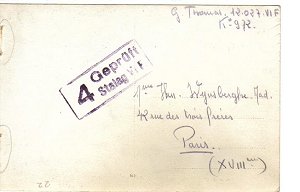 G Thomas. 12.027.VI F
K° 972.
4 Geprüft
Stalag VI F
Wynsberghe
rue des trois frères
Paris.
(XVIII